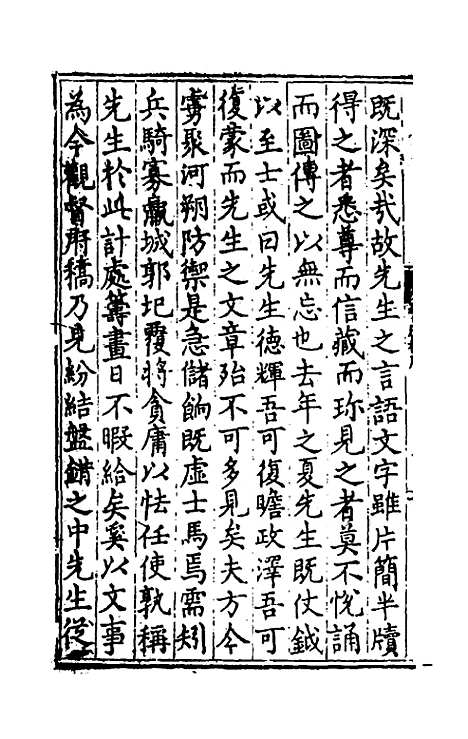 既深矣哉故先生之言語文字雖片簡半牘
得之者悉尊而信藏而珎見之者莫不悅誦
而圖傳之以無忘也去年之夏先生既仗鉞
以至士或曰先生德輝吾可復瞻政澤吾可
復蒙而先生之文章殆不可多見矣夫方今
虜聚河朔防禦是急儲餉既虛士馬焉需矧
兵騎寡羸城郭圮覆將貪庸以怯任使孰稱
先生於此計處籌畫日不暇給矣奚以文事
為今觀督府稿乃見紛結盤錯之中先生從